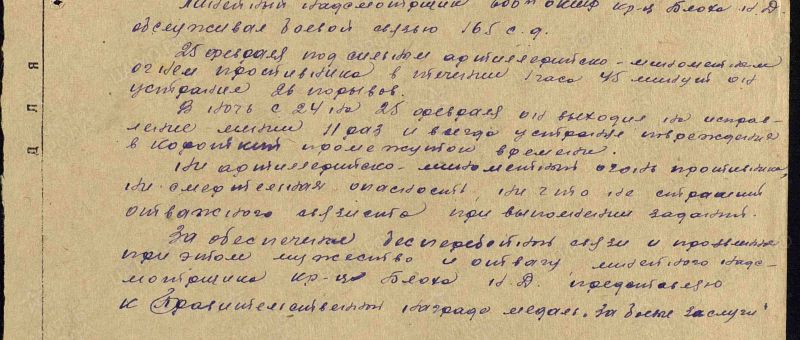 линейный надсмотрщик кр-ц Блоха Н.Д.
обслуживал боевой связью 165 с.д.
25 февраля под сильным артиллерийско-минометным
огнем противника в течении 1 часа 45 минут он
устранил 26 порывов.
В ночь с 24 на 25 февраля он выходил на исправ-
ление линии 11 раз и всегда устранял повреждения
в короткий промежуток времени.
Ни артиллерийско-минометный огонь противника,
ни смертельная опасность, ни что не страшит
отважного связиста при выполнении заданий.
За обеспечение бесперебойной связи и проявленные
при этом мужество и отвагу линейного надс-
мотрщика кр-ца Блоха Н.Д. представляю
к Правительственной награде медаль "За боевые заслуги"
ДЛЯ